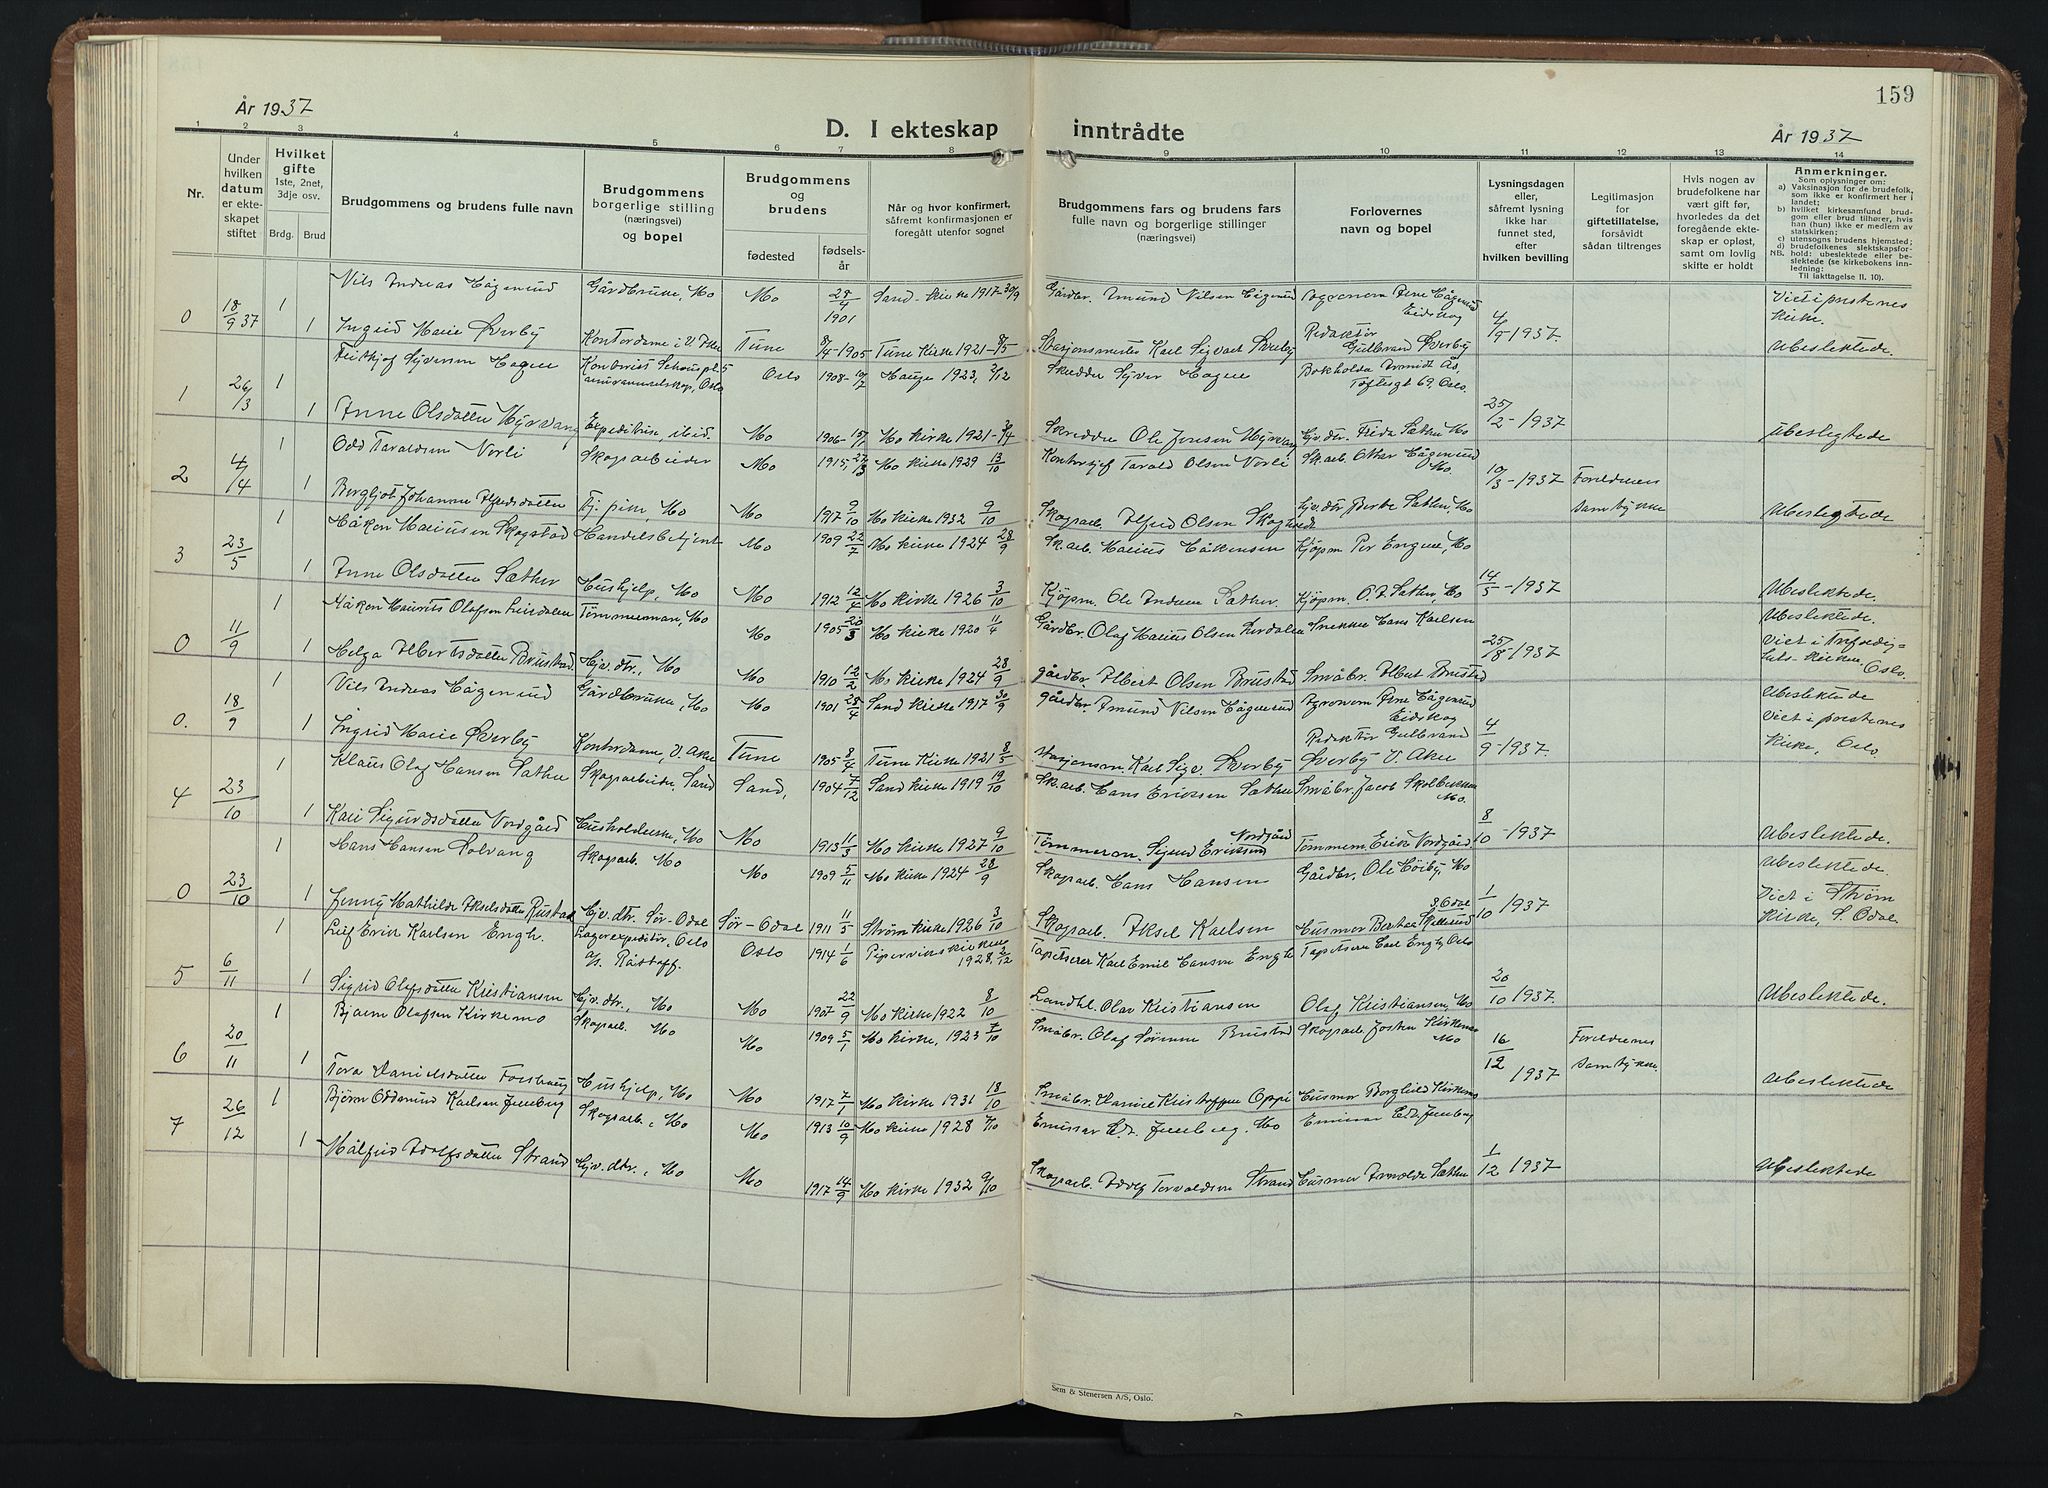 159
År 1937
D. I ekteskap inntrådte
År 1937
1 2 3 4 5 6 7 8 9 10 11 12 13 14
Nr.
Under hvilken datum er ekteskapet stiftet
Hvilket gifte
1ste, 2net, 3dje osv.
Brdg. Brud
Brudgommens og brudens fulle navn
Brudgommens borgerlige stilling (næringsvei) og bopel
Brudgommens og brudens
fødested
fødselsår
Når og hvor konfirmert, såfremt konfirmasjonen er foregått utenfor sognet
Brudgommens fars og brudens fars fulle navn og borgerlige stillinger (næringsvei)
Forlovernes navn og bopel
Lysningsdagen eller, såfremt lysning ikke har funnet sted, efter hvilken bevilling
Legitimasjon for giftetillatelse, forsåvidt sådan tiltrenges
Hvis nogen av brudefolkene har vært gift før, hvorledes da det foregående ekteskap er opløst, samt om lovlig skifte er holdt
Anmerkninger.
Som oplysninger om:
a) Vaksinasjon for de brudefolk, som ikke er konfirmert her i landet;
b) hvilket kirkesamfund brudgom eller brud tilhører, hvis han (hun) ikke er medlem av statskirken;
c) utensogns brudens hjemsted;
d) brudefolkenes slektskapsforhold: ubeslektede eller beslektede (se kirkebokens innledning:
NB. Til iakttagelse II. 10).
0 18/9 37 1 Nils Andreas Hågensrud Gårdbruker, Mo Mo 28/4 1901 Sand kirke 1917 30/9 Gårdbr. Amund Nilsen Agronom Arne Eidskog Viet i prestenes kirke.
1 Ingrid Marie Øverby Kontordame i V. Aker Tune 8/4-1905 Tune kirke 1921-8/5 Stasjonsmester Karl Sigvart Øverby Redaktør Gulbrand Øverby 4/9-1937 Ubeslektede.
1 26/3 1 Fritkjof Syversen Hagen Oslo Oslo 1908-10/7 Hauge 1923, 2/12 Skredder Syver Hagen Bokholder Toftesgt 69, Oslo.
1 Anne Olsdatter Myrvang Expeditrise, ibid. Mo 1906-15/1 Mo kirke 1921- Skredder Ole Jensen Myrvang Hjv. dtr. Frida Sæther Mo 25/2-1937 Ubeslegtede
2 4/4 1 Odd Taraldsen Norli Skogsarbeider Mo 1915, 27/3 Mo kirke 1929 13/10 Tarald Olsen Norli Sk.arb. Mo. 10/3-1937 Foreldrenes samtykke
1 Bergljot Johanne Alfredsdatter Tj. pike, Mo Mo 1917 9/10 Mo kirke 1932 9/10 Skogsarb. Alfred Olsen Hjv. dtr. Sæther, Mo Ubeslegtede
3 23/5 1 Håkon Mariussen Skogstad Handelsbetjent Mo 1909 22/7 Mo kirke 1924 28/9 Sk.arb. Marius Håkensen Kjøpm. Per Mo
1 Anne Olsdatter Sæther Hushjelp, Mo Mo 1912 12/4 Mo kirke 1926 3/10 Kjøpm. Ole Andreas Sæther. Kjøpm. O. A. Sæther, Mo 14/5-1937 Ubeslektede.
0 11/9 1 Håkon Maurits Olafsen Tømmermann, Mo Mo 1905 20/3 Mo kirke 1920 11/4 Gårdbr. Olaf Marius Olsen Snekker Hans Karlsen Ubeslektede. Viet i
1 Helga Albertsdatter Brustad Hjv. dtr., Mo Mo 1910 12/2 Mo kirke 1924 28/9 Gårdbr. Albert Olsen Brustad Småbr. Albert Brustad 25/8-1937 Oslo.
0. 18/9 1 Nils Andreas Hågensrud Gårdbruker, Mo Mo 1901 28/4 Sand kirke 1917 30/9 Gårdbr. Amund Nilsen Agronom Arne Eidskog Ubeslektede
1 Ingrid Marie Øverby Kontordame, V. Aker Tune 1905 8/4 Tune kirke 1921 8/5 Stasjonsm. Karl Sigv. Øverby Redaktør Gulbrand Øverby V. Aker 4/9-1937. Viet i prestenes kirke, Oslo
4 23/10 1 Klaus Olaf Hansen Sæther Skogsarbeider, Sand Sand, 1904 7/12 Sand kirke 1919 19/10 Sk.arb. Hans Eriksen Sæther Småbr. Jacob Mo.
1 Kari Sigurdsdatter Nordgård Husholderske, Mo Mo 1913 11/3 Mo kirke 1927 9/10 Tømmerm. Sigurd Eriksen Nordgård Tømmerm. Erik Nordgård 8/10-1937 Ubeslektede.
0 23/10 1 Hans Hansen Solvang Skogsarb. Mo Mo 1909 5/11 Mo kirke 1924 28/9 Skogsarb. Hans Hansen Gårdbr. Ole Høiby, Mo Ubeslektede
1 Jenny Mathilde Akselsdatter Rustad Hjv. dtr. Sør-Odal Sør-Odal 1911 11/5 Strøm kirke 1926 3/10 Skogsarb. Aksel Karlsen Husmor S. Odal 1/10 1937 Viet i Strøm kirke, S. Odal
5 6/11 1 Leif Erik Karlsen Engh. Lagerexpeditør, Oslo A/S. Råstoff. Oslo 1914 1/6 1928. 2/12 Tapetserer Karl Emil Hansen Engh Tapetserer Carl Engh, Oslo
1 Sigrid Olafsdatter Kristiansen Hjv. dtr., Mo Mo 1907 22/9 Mo kirke 1922 8/10 Landh. Olav Kristiansen Olaf Kristiansen, Mo 20/10 1937. Ubeslektede.
6 20/11 1 Bjarne Olafsen Kirkemo Skogsarb. Mo Mo 1909 5/1 Mo kirke, 1923 7/10 Småbr. Olaf Brustad Skogsarb. Jostein Kirkemo Mo 16/12 1937 Foreldrenes samtykke.
1 Tora Danielsdatter Hushjelp, Mo Mo 1917 7/1 Mo kirke 1931 18/10 Småbr. Daniel Kristoffersen Husmor Borghild Kirkemo Ubeslektede
7 26/12 1 Bjørn Oddmund Karlsen Skogsarb., Mo Mo 1913 10/9 Mo kirke 1928 7/10 Emissær Mo Emissær
1 Målfrid Adolfsdatter Strand Hjv. dtr., Mo Mo 1917 14/9 Mo kirke 1932 9/10 Skogsarb. Adolf Torvaldsen Strand Husmor Sæther 1/12 1937 Ubeslektede
Sem & Stenersen A/S, Oslo.